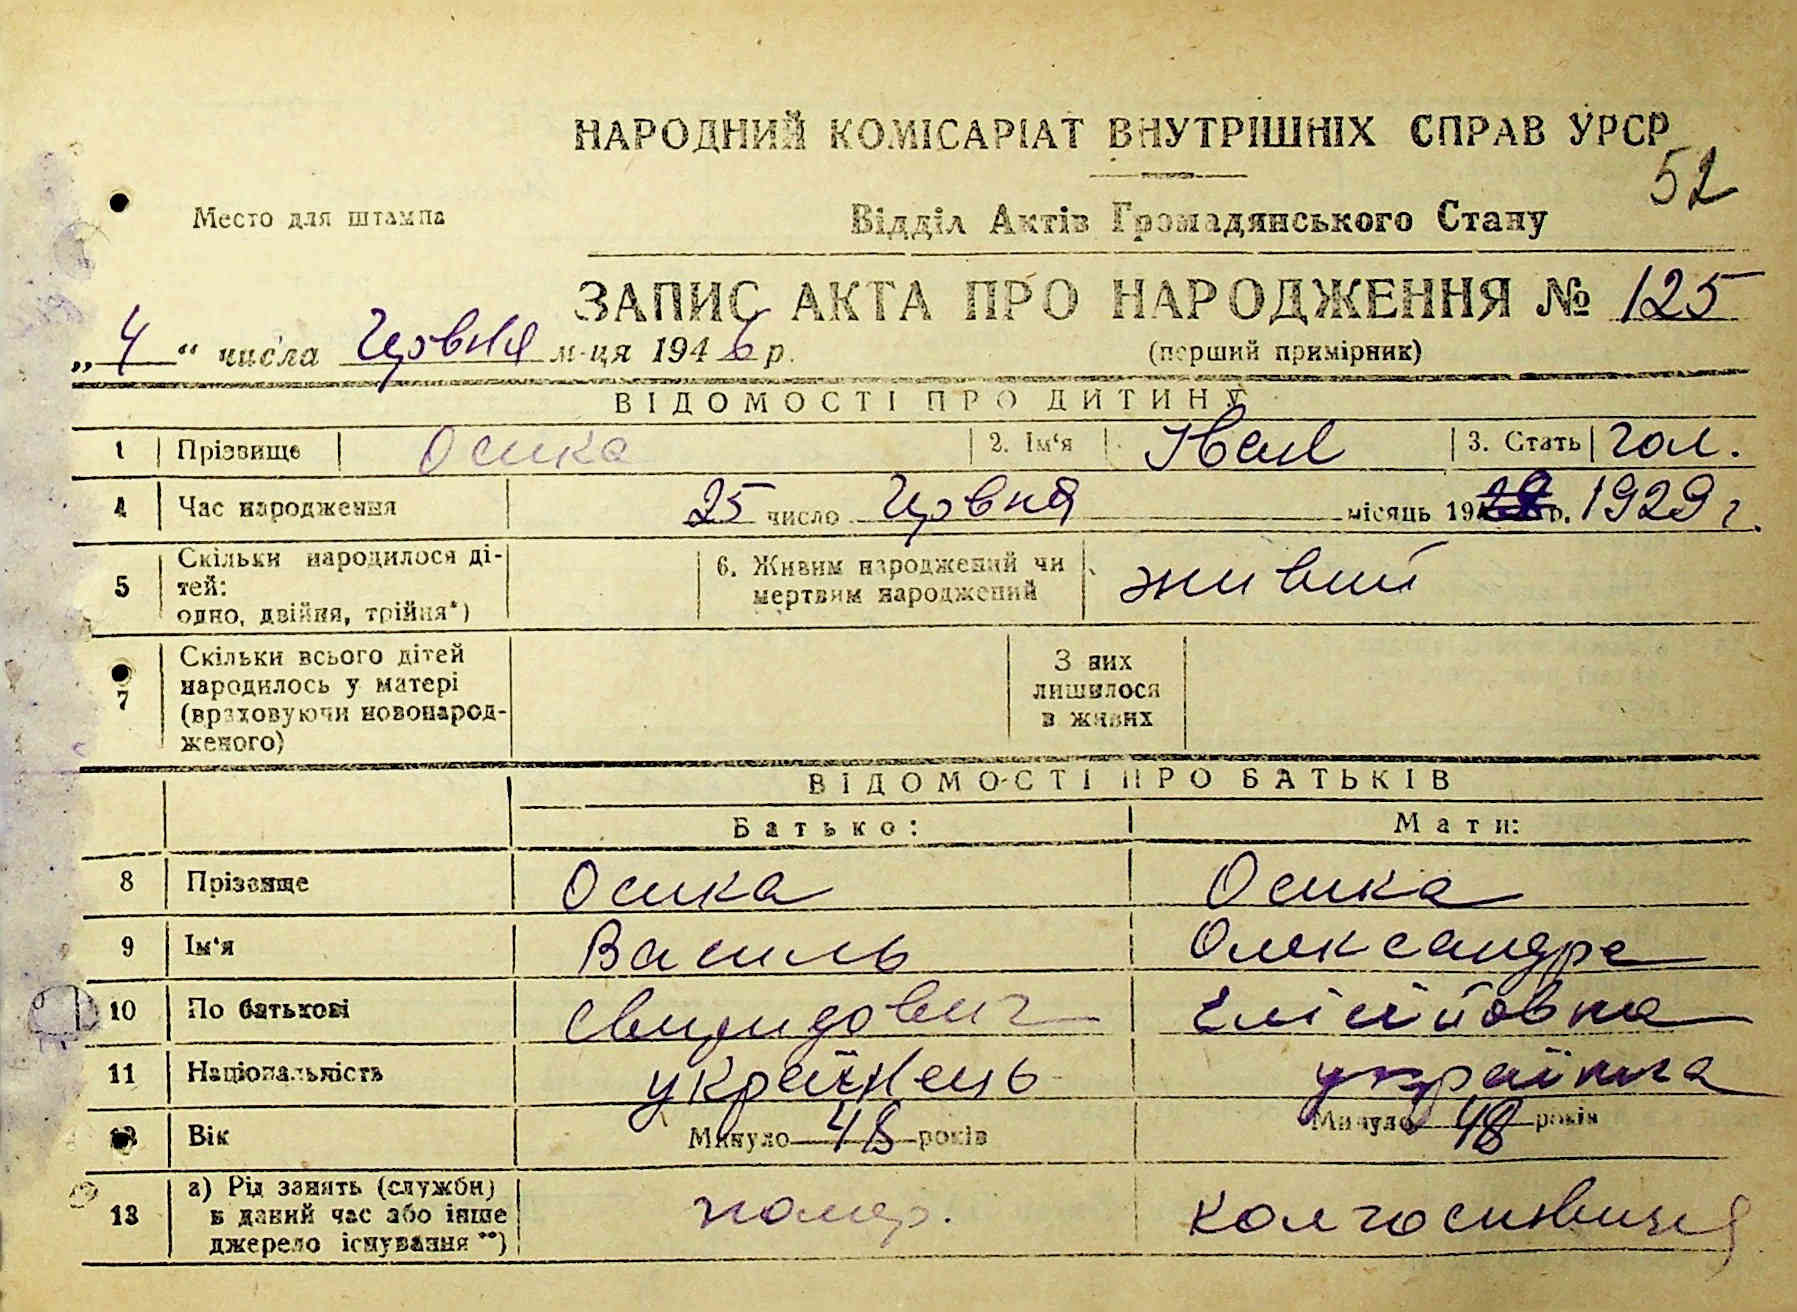 НАРОДНИЙ КОМІСАРІАТ ВНУТРІШНІХ СПРАВ УРСР
52
Место для штампа
Відділ Актів Громадянського Стану
ЗАПИС АКТА ПРО НАРОДЖЕННЯ № 125
„4“ числа Червня м-ця 1946 р.
(перший примірник)
ВІДОМОСТІ ПРО ДИТИНУ
1 Прізвище Осика 2. Ім'я Іван 3. Стать чол.
4 Час народження 25 число Червня місяць 1929 р. 1929 г.
5 Скільки народилося ді-
тей:
одно, двійня, трійня*)
6. Живим народжений чи
мертвим народжений
живий
7 Скільки всього дітей
народилось у матері
(враховуючи новонарод-
женого)
З них
лишилося
в живих
ВІДОМОСТІ ПРО БАТЬКІВ
Батько: Мати:
8 Прізвище Осика Осика
9 Ім'я Василь Олександра
10 По батькові Свиридович Елісійовна
11 Національність українець українка
12 Вік Минуло 48 років Минуло 48 років
13 а) Рід занять (служби)
в даний час або інше
джерело існування **)
помер. колгоспниця